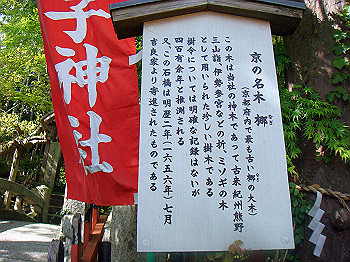 京の名木 梛
（京都府内で最も古い梛の大木）
この木は当社の神木であって古来 紀州熊野
三山詣、伊勢参宮などの折、ミソギの木
として用いられた珍しい樹木である
樹令については明確な記録はないが
四百有余年と推測される
又、この石橋は明暦二年（一六五六年）七月
家より寄進されたものである
子神社